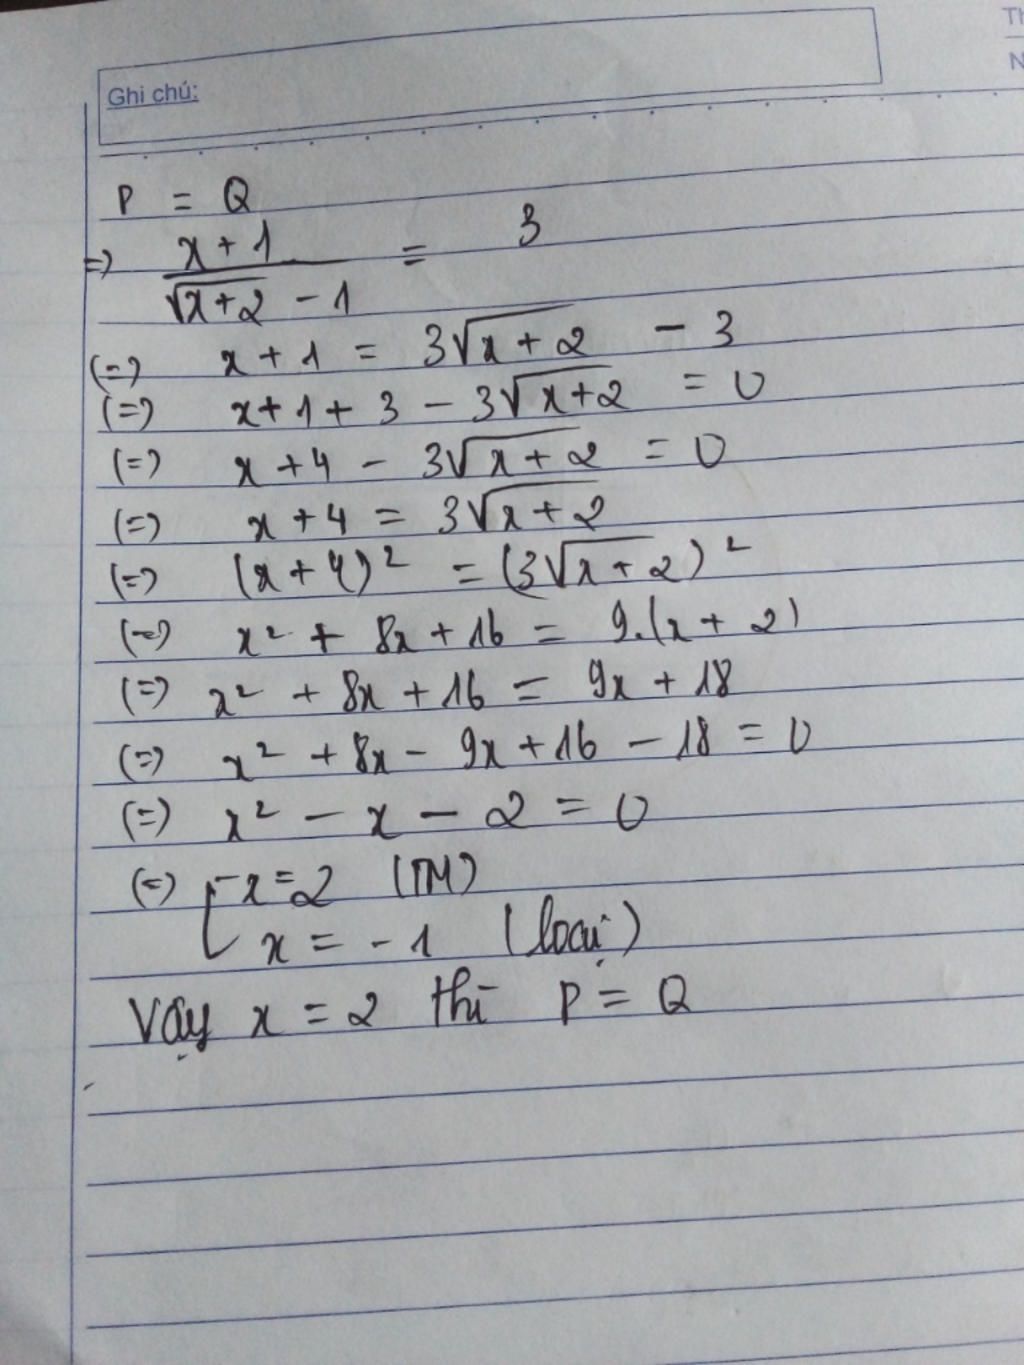 Th
N
Ghi chú:
P = Q
=> x + 1 / √x+2 - 1 = 3
(=) x + 1 = 3√x+2 - 3
(=) x+1+3 - 3√x+2 = 0
(=) x+4 - 3√x+2 = 0
(=) x+4 = 3√x+2
(=) (x+4)² = (3√x+2)²
(=) x² + 8x + 16 = 9.(x+2)
(=) x² + 8x + 16 = 9x + 18
(=) x² + 8x - 9x + 16 - 18 = 0
(=) x² - x - 2 = 0
(=) [ x = 2 (TM)
x = -1 (loại)
Vậy x = 2 thì P = Q